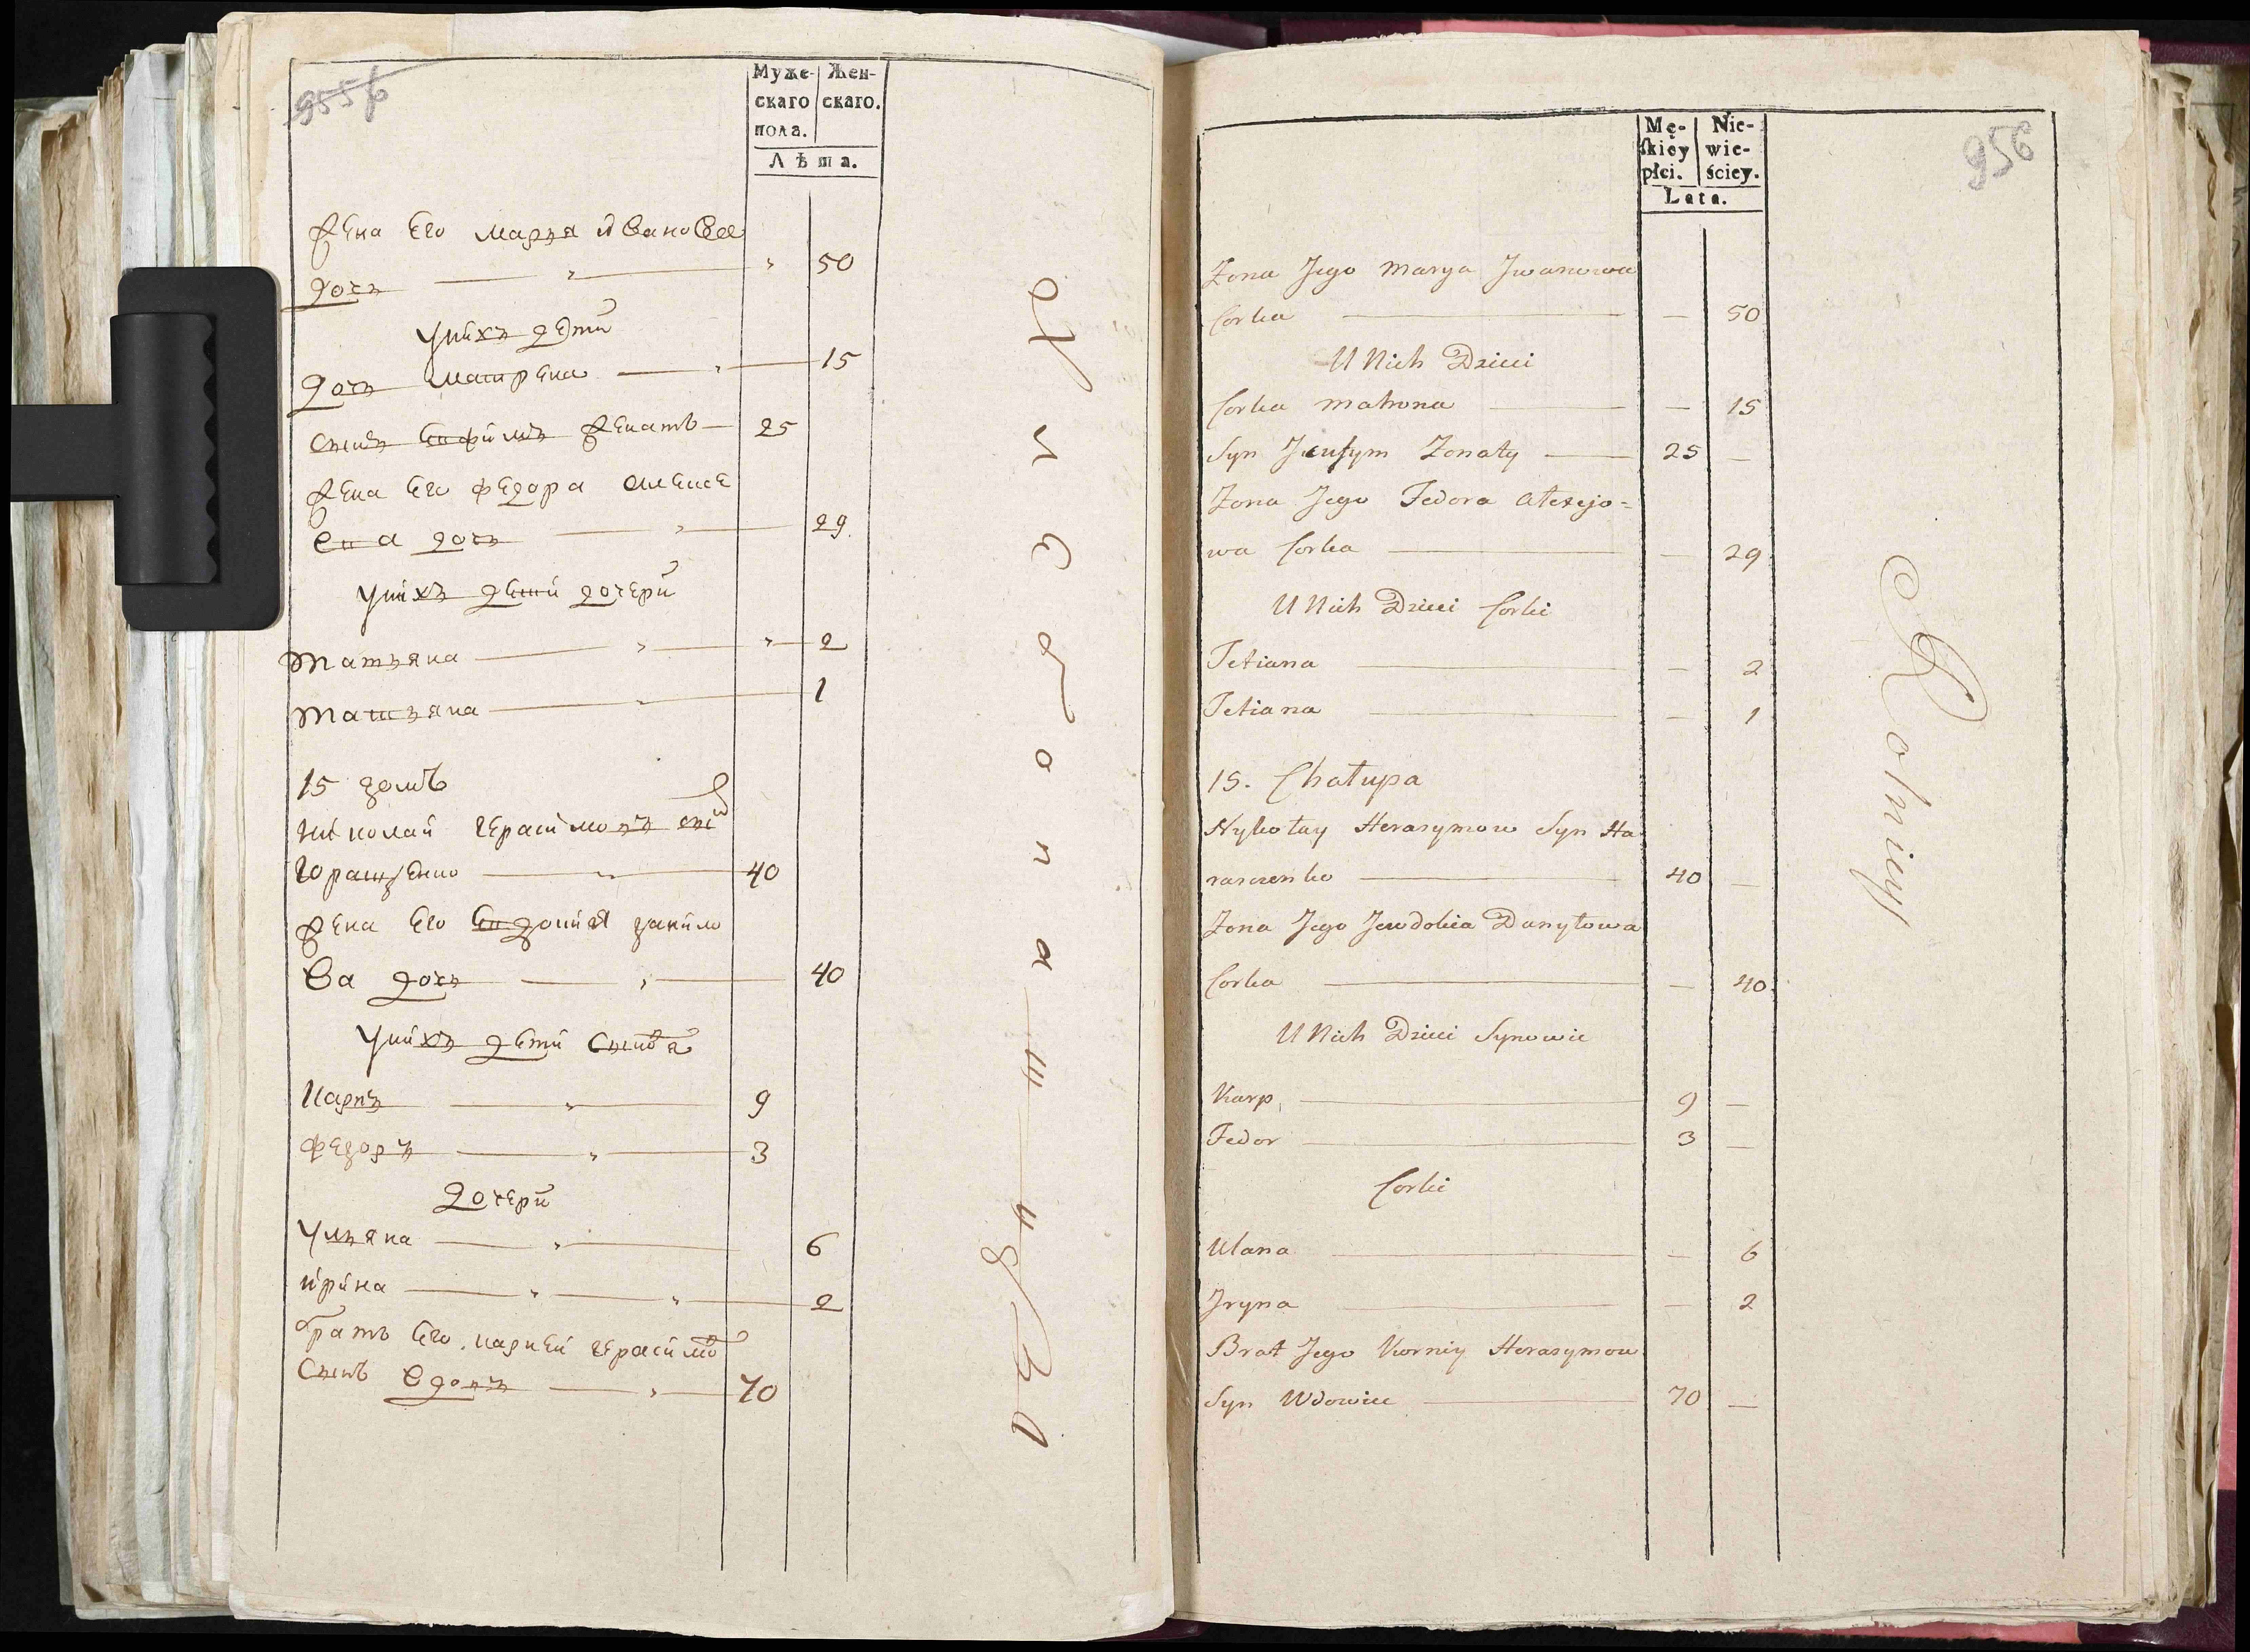 955 б
Муже- Жен-
скаго скаго.
пола.
Лѣта.
Жена Его Марья Ивановa
Дочь — " — " 50
У нихъ дѣти
Дочь Матрена — " — 15
Сынъ Евфимъ Женатъ — 25
Жена Его Федора Алексе
Ева дочь — " — 29
У нихъ дети дочери
Татьяна — " — " — 2
Татьяна — " — 1
15 домъ
Николай Герасимовъ сынъ
Горащенко — " — 40
Жена Его Евдокия Данило
Ва дочь — " — 40
У нихъ дети Сынова
Карпъ — " — 9
Федоръ — " — 3
Дочери
Ульяна — " — 6
Ирина — " — " — 2
братъ Его Карней Герасимо
Сынъ Вдовъ — " — 70
Mę- Nie-
skiey wie-
płci. ściey.
Lata.
956
Zona Jego Marya Jwanowa
Corka — — 50
U Nich Dzieci
Corka Matrona — — 15
Syn Jeufym Zonaty — 25 —
Zona Jego Fedora Alexejo=
wa Corka — — 29
U Nich Dzieci Corki
Tetiana — — 2
Tetiana — — 1
15. Chałupa
Nykołay Herasymow Syn Ha
raszczenko — 40 —
Zona Jego Jewdokia Danyłowa
Corka — — 40
U Nich Dzieci Synowie
Karp — 9 —
Fedor — 3 —
Corki
Ulana — — 6
Jryna — — 2
Brat Jego Korniy Herasymow
Syn Wdowiec — 70 —
Rolniey